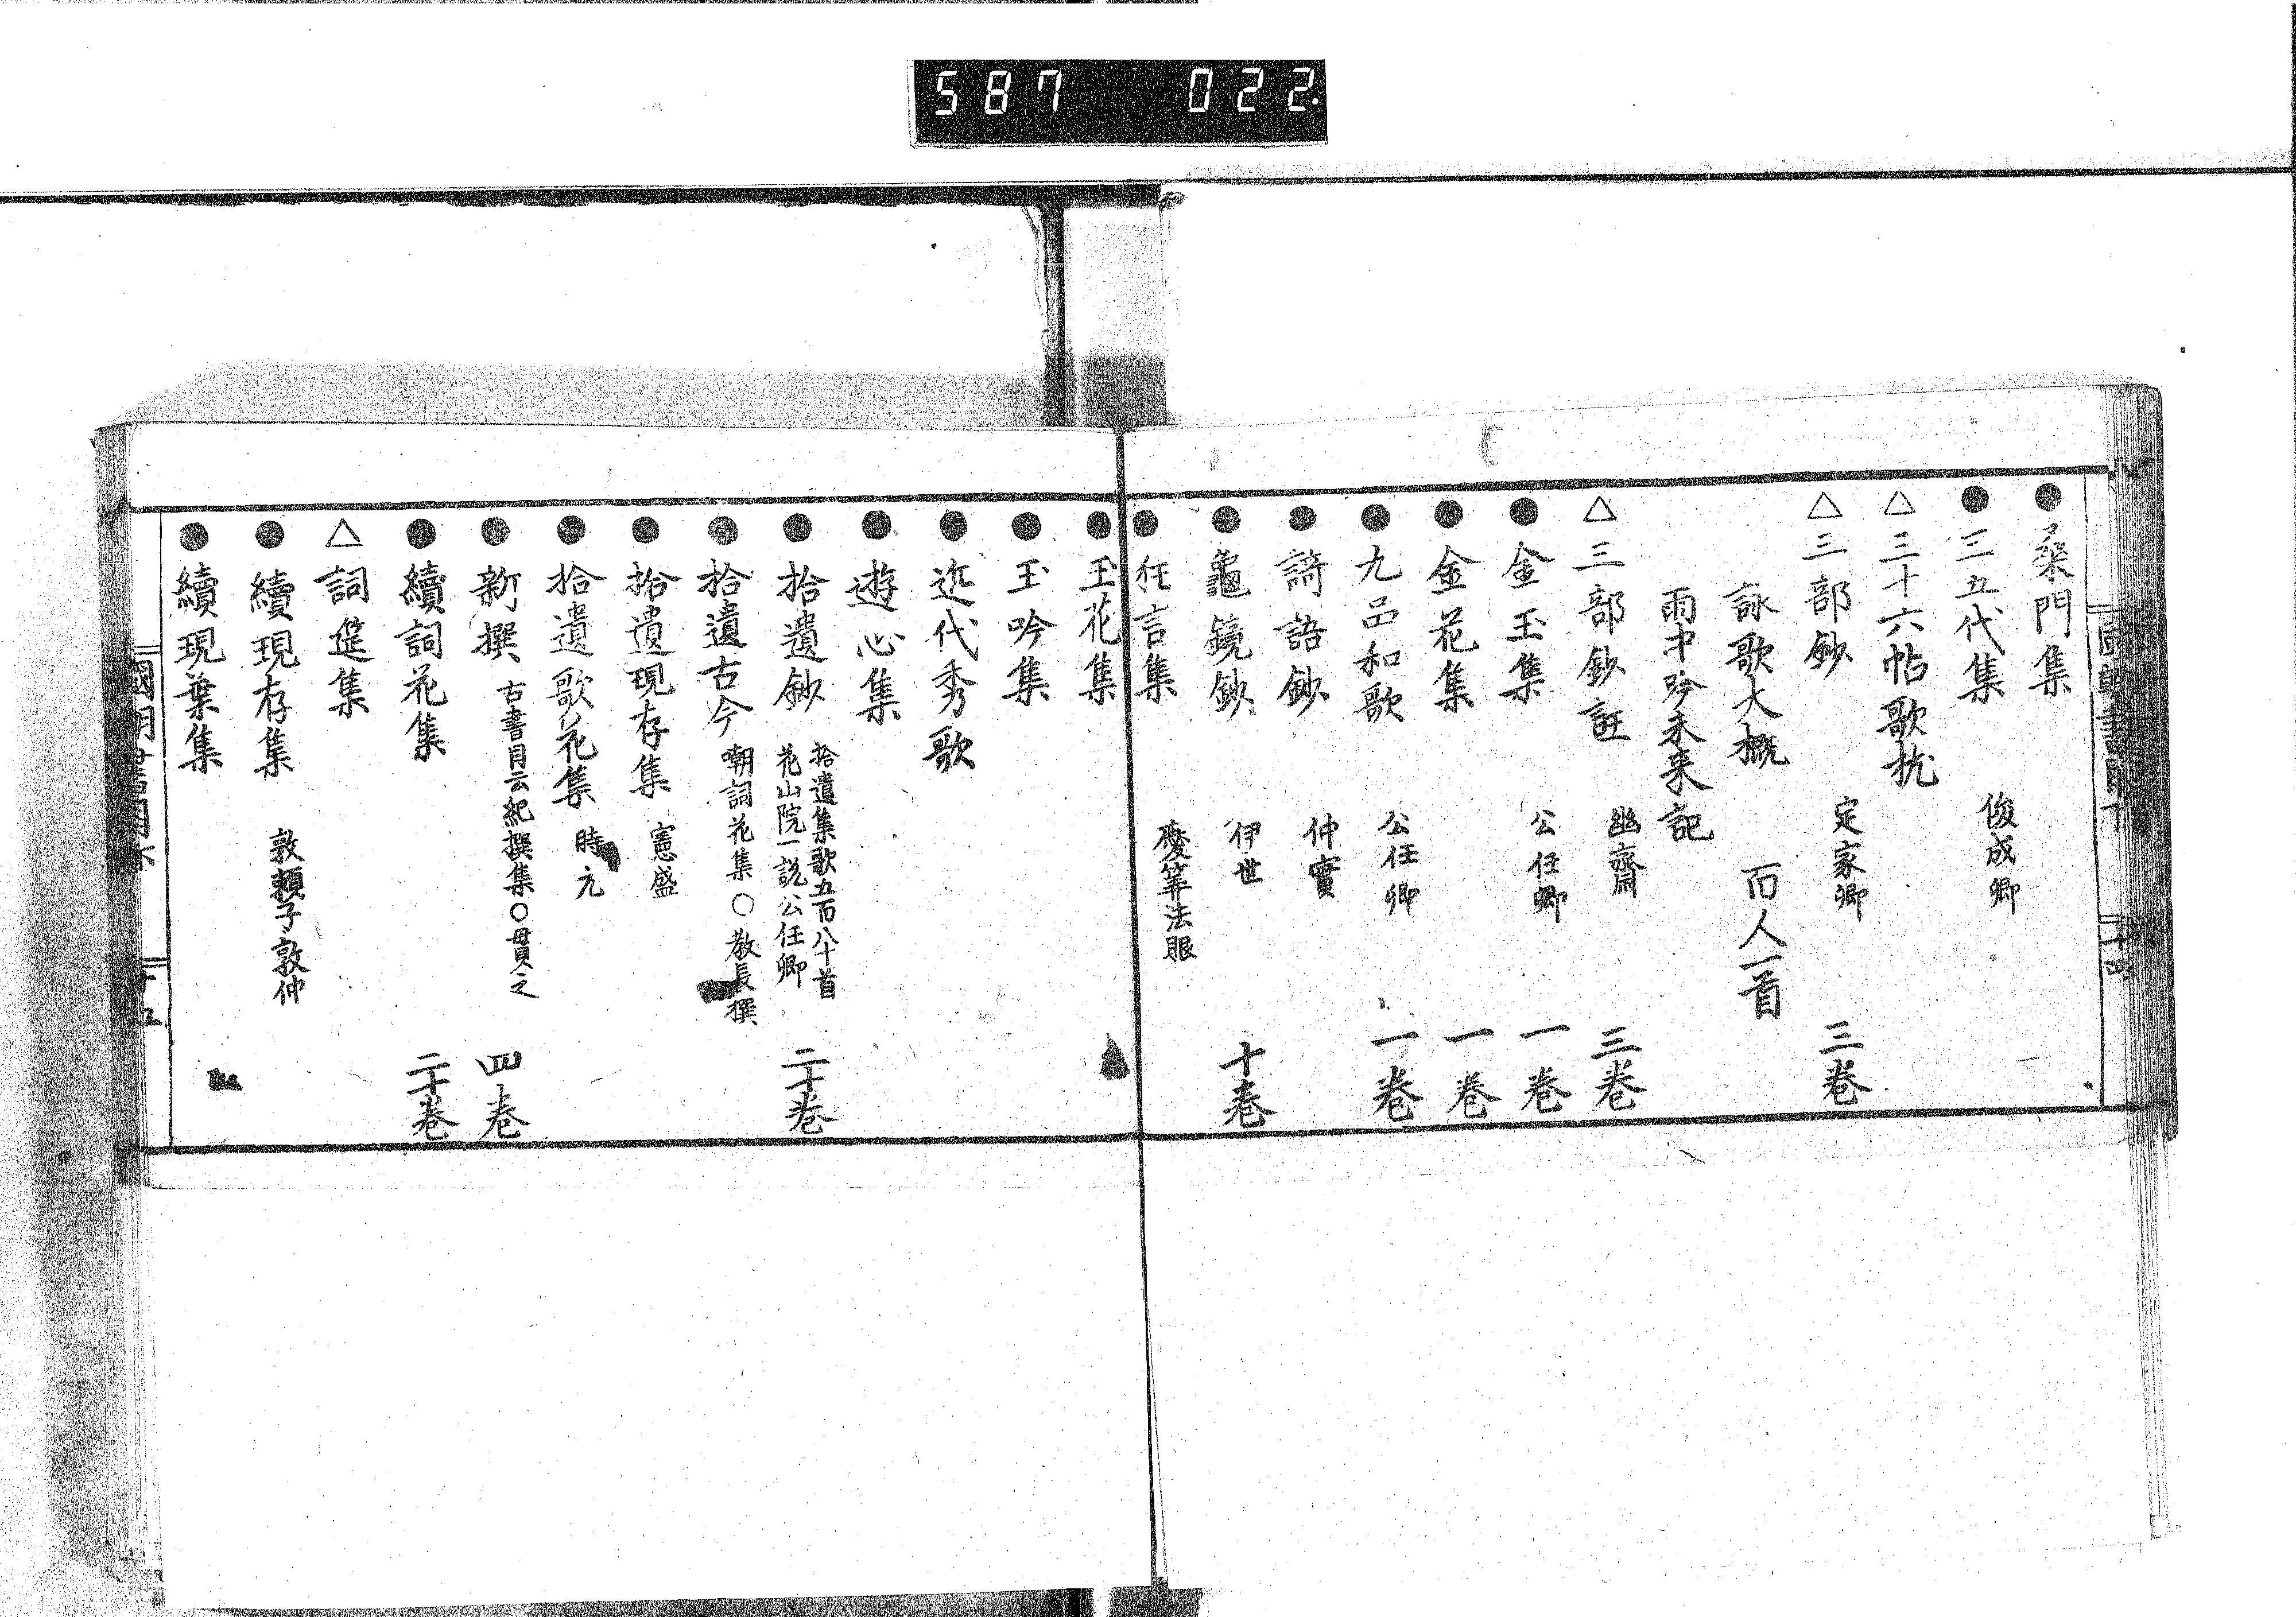 587 022.
● 桒門集
● 三五代集 俊成卿
△ 三十六帖歌抗
△ 三部鈔 定家卿 三卷
詠歌大概 百人一首
雨中吟未来記
△ 三部鈔註 幽齋 三卷
● 金玉集 公任卿 一卷
● 金花集 一卷
● 九品和歌 公任卿 一卷
● 謌語鈔 仲實
● 龜鏡鈔 伊世 十卷
● 狂言集 慶算法眼
● 玉花集
● 玉吟集
● 近代秀歌
● 遊心集
● 拾遺鈔 拾遺集歌五百八十首
花山院一説公任卿 二十卷
● 拾遺古今 嘲詞花集○教長撰
● 拾遺現存集 憲盛
● 拾遺歌花集 時元
● 新撰 古書目云紀撰集○毋貫之 四卷
● 續詞花集 二十卷
△ 詞筵集
● 續現存集 敦頼子敦仲
● 續現葉集